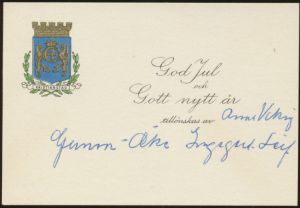 KRISTIANSTAD
God Jul
och
Gott nytt år
tillönskas av
Gunnar - Åke Ingegerd. Leif